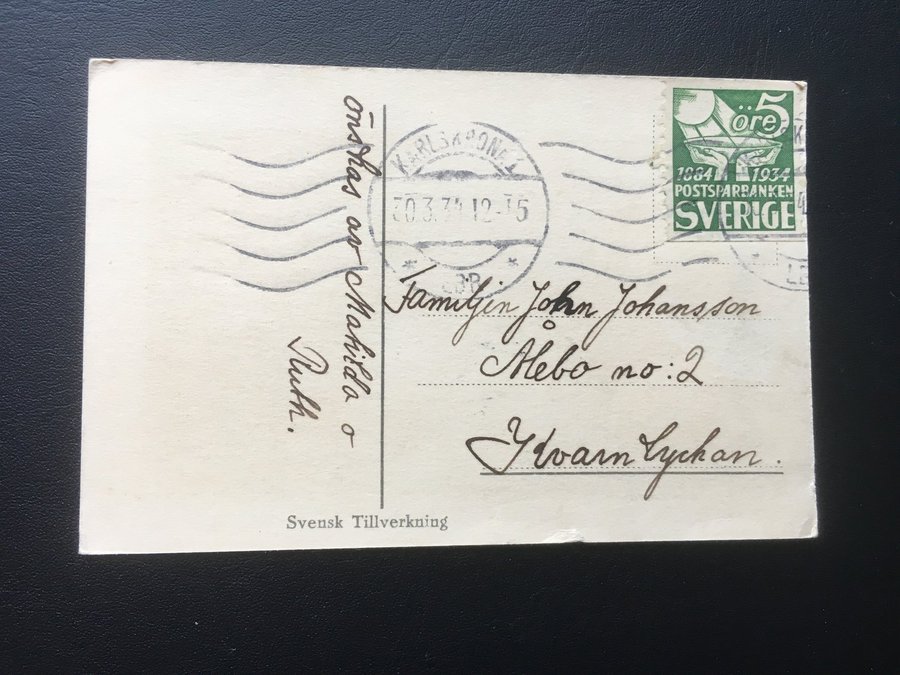 önskas av Mahilda o
Ruth.
KARLSKRONA 1
30.3.34.12-15
LBR
5
öre
1884 1934
POSTSPARBANKEN
SVERIGE
Familjen John Johansson
Ålebo no: 2
Kvarnlyckan.
Svensk Tillverkning